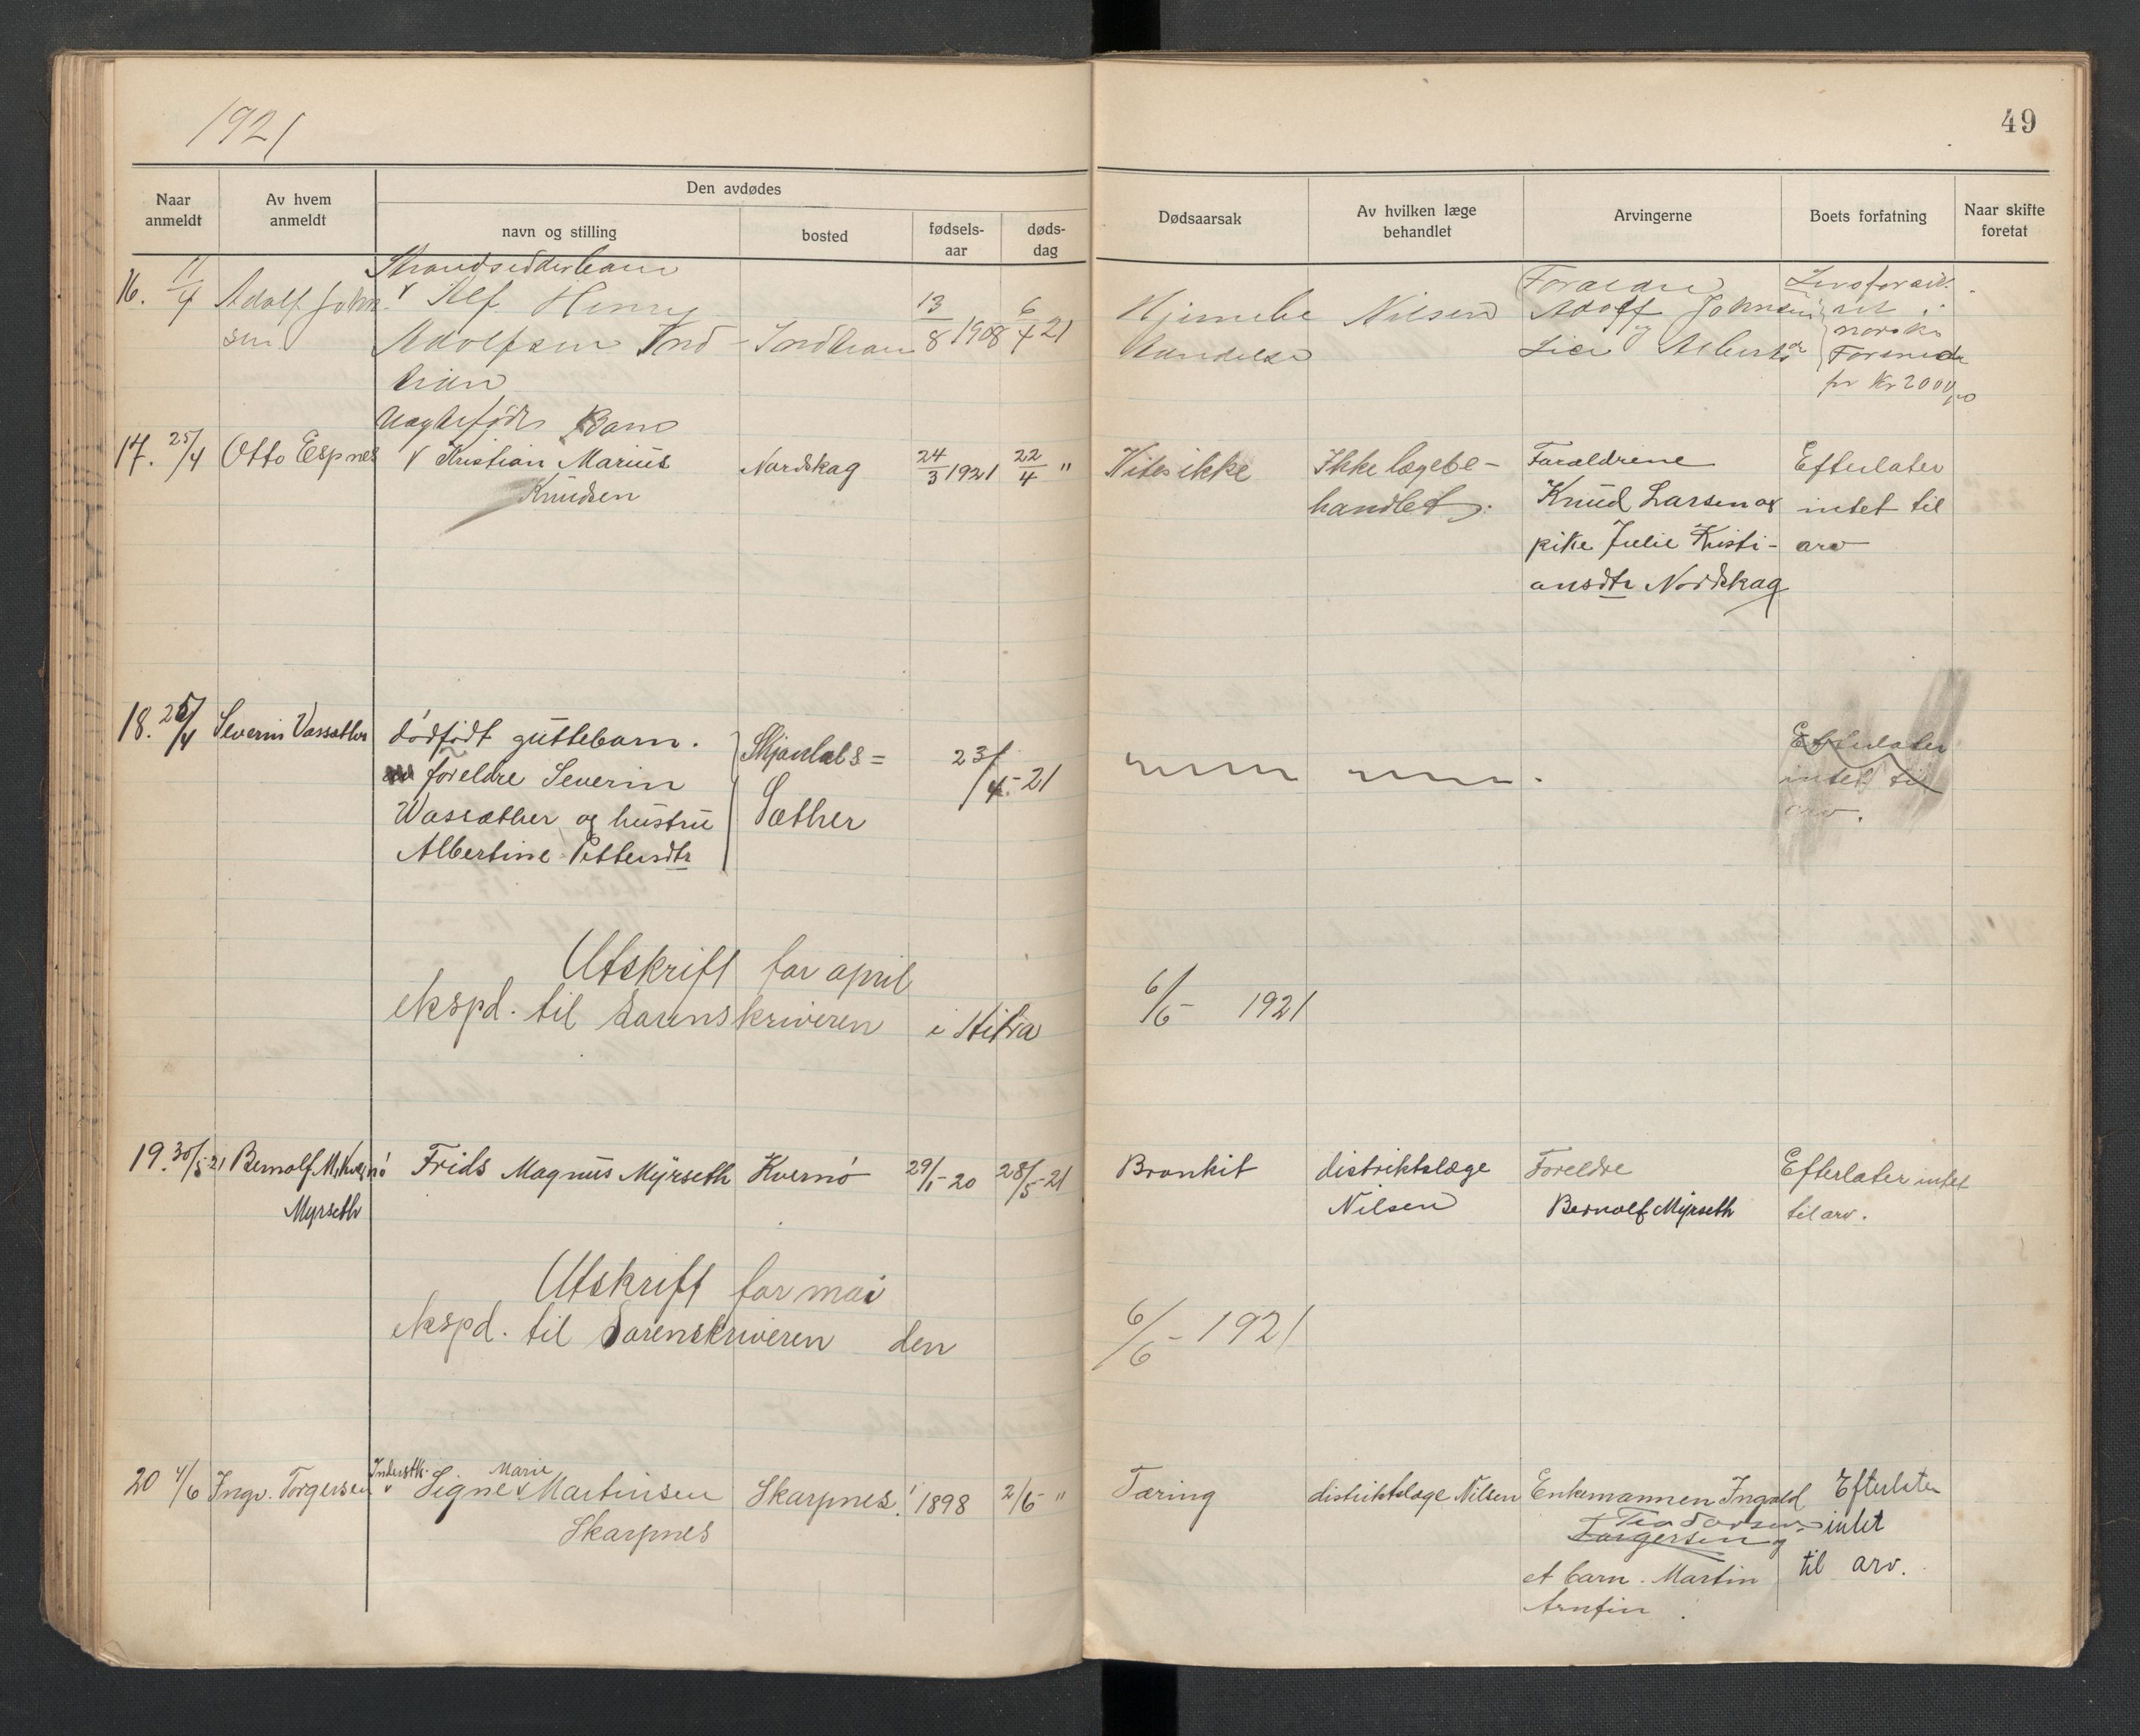 1921
49
Naar anmeldt
Av hvem anmeldt
Den avdødes
navn og stilling
bosted
fødsels-aar
døds-dag
Dødsaarsak
Av hvilken læge behandlet
Arvingerne
Boets forfatning
Naar skifte foretat
Strandsidderbarn
16. 11/4 Adolf John- v Alf Henry 13/8 1908 6/4 21 Hjernebe Nilsen
sen Adolfsen
Foraldre
Adolf Johnsen
og
17. 25/4 Otto Espnes v Kristian Marius Nordskag 24/3 1921 22/4 " Vites ikke Ikke lægebe- Foraldrene Efterlater
Knudsen handlet. Knud Larsen og intet til
pike Julie Kristi- arv
ansdtr Nordskag
for Kr 2000,00
18. 25/4 Severin Vassæther dødfødt guttebarn. 23/4-21 Efterlater
av foreldre Severin intet til
Wassæther og hustru Sæther arv.
Albertine Pettersdtr
Utskrift for april
ekspd. til Sorenskriveren i Hitra 6/5- 1921
19. 30/5 21 Bernolf M. Frids Magnus Myrseth Kvernø 29/1-20 28/5-21 Bronkit distriktslæge Foreldre Efterlater intet
Myrseth Nilsen Bernolf Myrseth til arv.
Utskrift for mai
ekspd. til Sorenskriveren den 6/6- 1921
20 4/6 Ingv. Torgersen Inderstk. v Signe Marie Martinsen Skarpnes. 1898 2/6- " Tæring distriktslæge Nilsen Enkemannen Ingvald Efterlater
Skarpnes Teodorsen intet
Torgersen og
et barn. Martin til arv.
Arnfin.